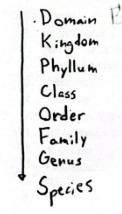 Domain
Kingdom
Phyllum
Class
Order
Family
Genus
Species